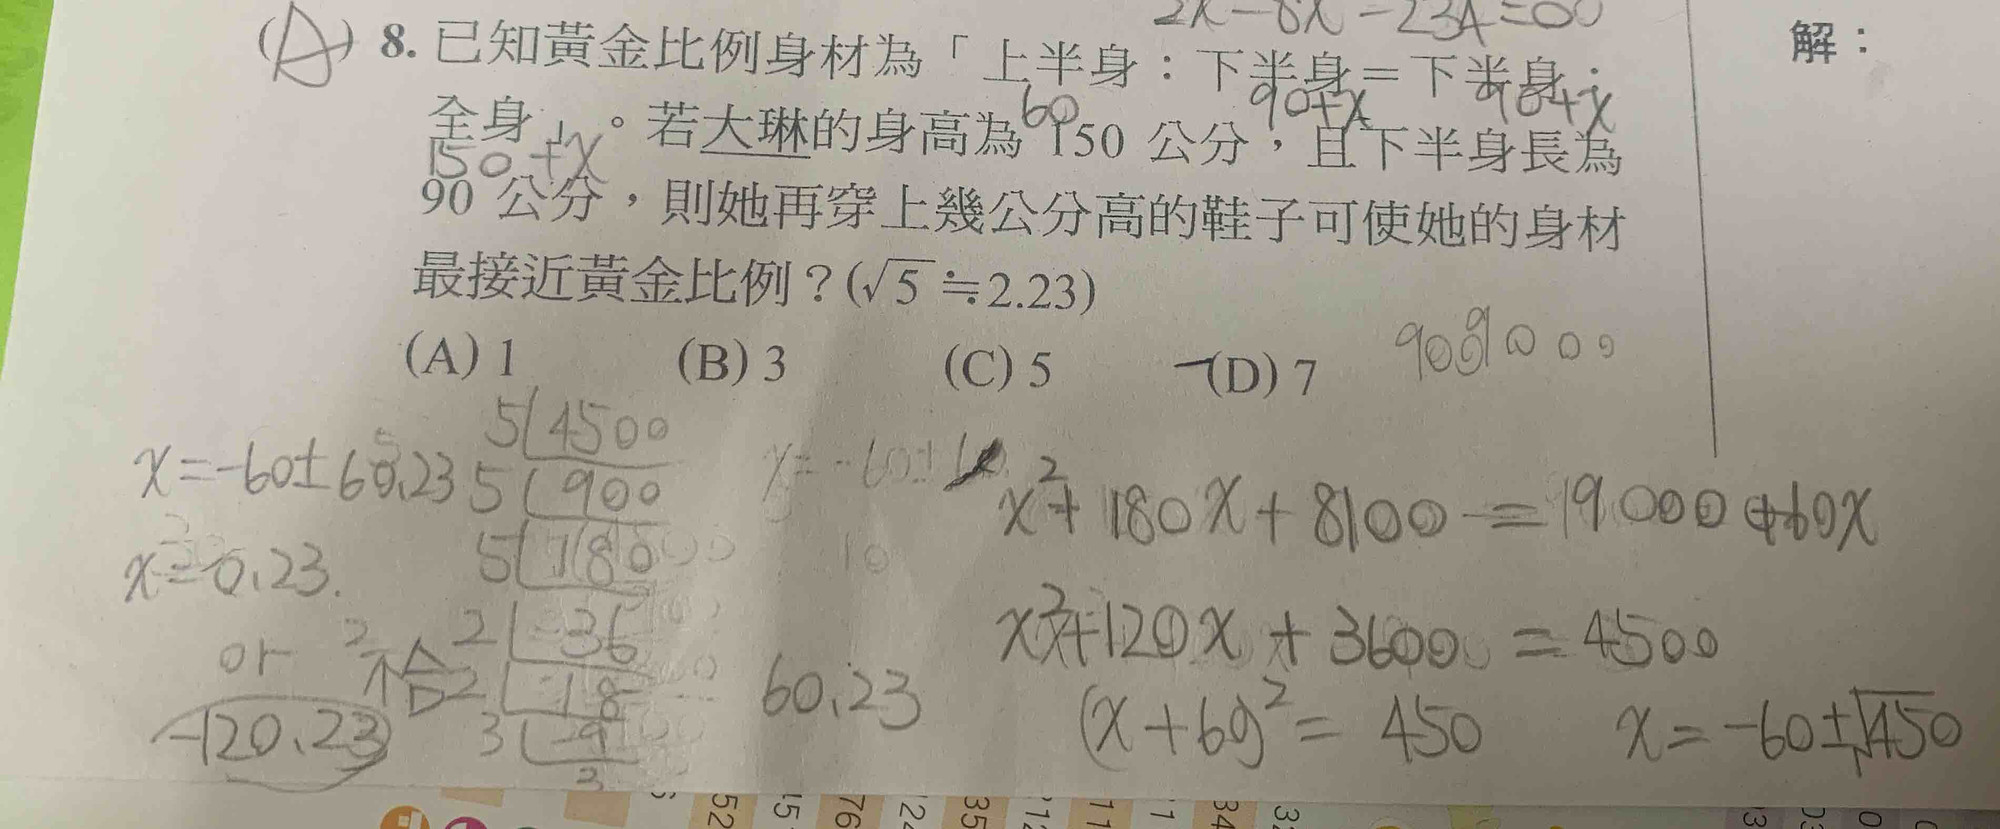 2x-8x-234=00
(A) 8. 已知黃金比例身材為「上半身：下半身＝下半身：
60 90+x 90+x
全身」。若大琳的身高為 150 公分，且下半身長為
150+x
90 公分，則她再穿上幾公分高的鞋子可使她的身材
最接近黃金比例？(√5≒2.23)
(A) 1 (B) 3 (C) 5 (D) 7
解：
x=-60±60.23
x=0.23.
or
-120.23
不合
5 4500
5 900
5 180
2 36
2 18
3 9
3
60.23
x²+180x+8100=9000+60x
x²+120x+3600=4500
(x+60)²=450
x=-60±√450